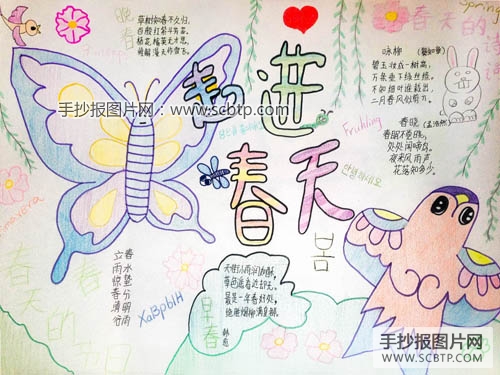 晚春
草树知春不久归,
百般红紫斗芳菲。
杨花榆荚无才思,
惟解漫天作雪飞。
Spring
春天的
咏柳 (贺知章)
碧玉妆成一树高,
万条垂下绿丝绦。
不知细叶谁裁出,
二月春风似剪刀。
手抄报图片网：www.scbtp.com
走进
春天
Fruhling
안녕하세요
봄
春晓 (孟浩然)
春眠不觉晓,
处处闻啼鸟。
夜来风雨声,
花落知多少。
Primavera
立春
雨水
惊蛰
春分
清明
谷雨
春
的节日
天街小雨润如酥,
草色遥看近却无。
最是一年春好处,
绝胜烟柳满皇都。
早春
韩愈
手抄报图片网
WWW.SCBTP.COM